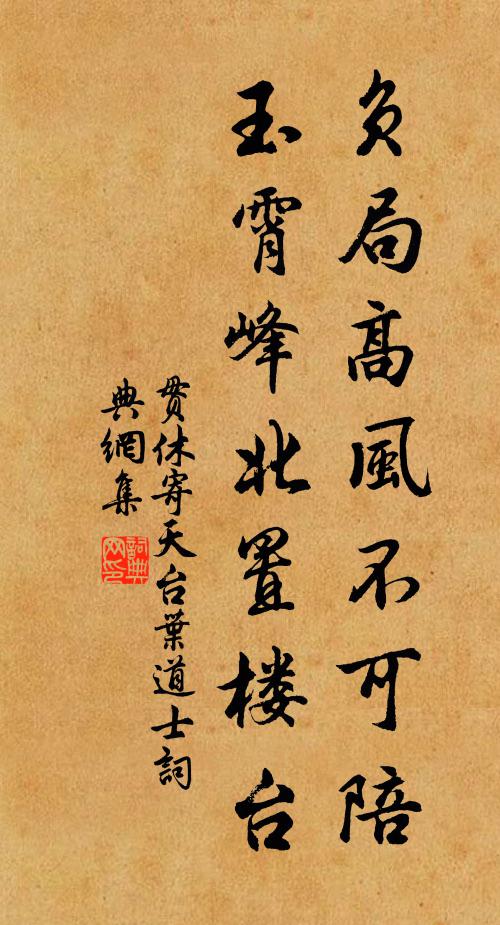 负局高風不可陪
玉霄峰北置楼台
贯休寄天台葉道士詞
典網集
詞典網印